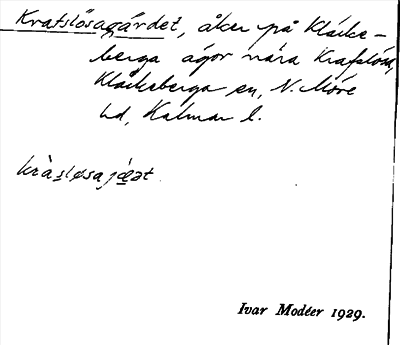 Kratslösagärdet, åker på Kläcke-
berga ägor nära Kratslösa,
Kläckeberga sn, N. Möre
hd, Kalmar l.
kràsløsajæ̀ət
Ivar Modéer 1929.